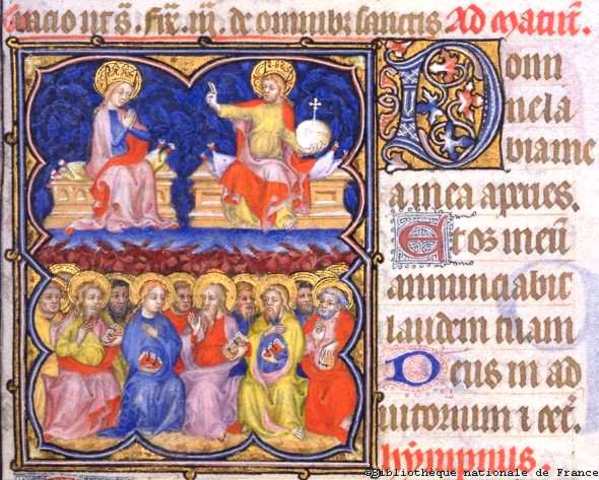 de omnib; sanctis Ad Matut̄.
Domi
ne la
bia me
a mea apries.
Et os meū
annunciabit
laudem tuam
Deus in ad
iutorium ⁊ cet̄.
hympnus
©Bibliothèque nationale de France